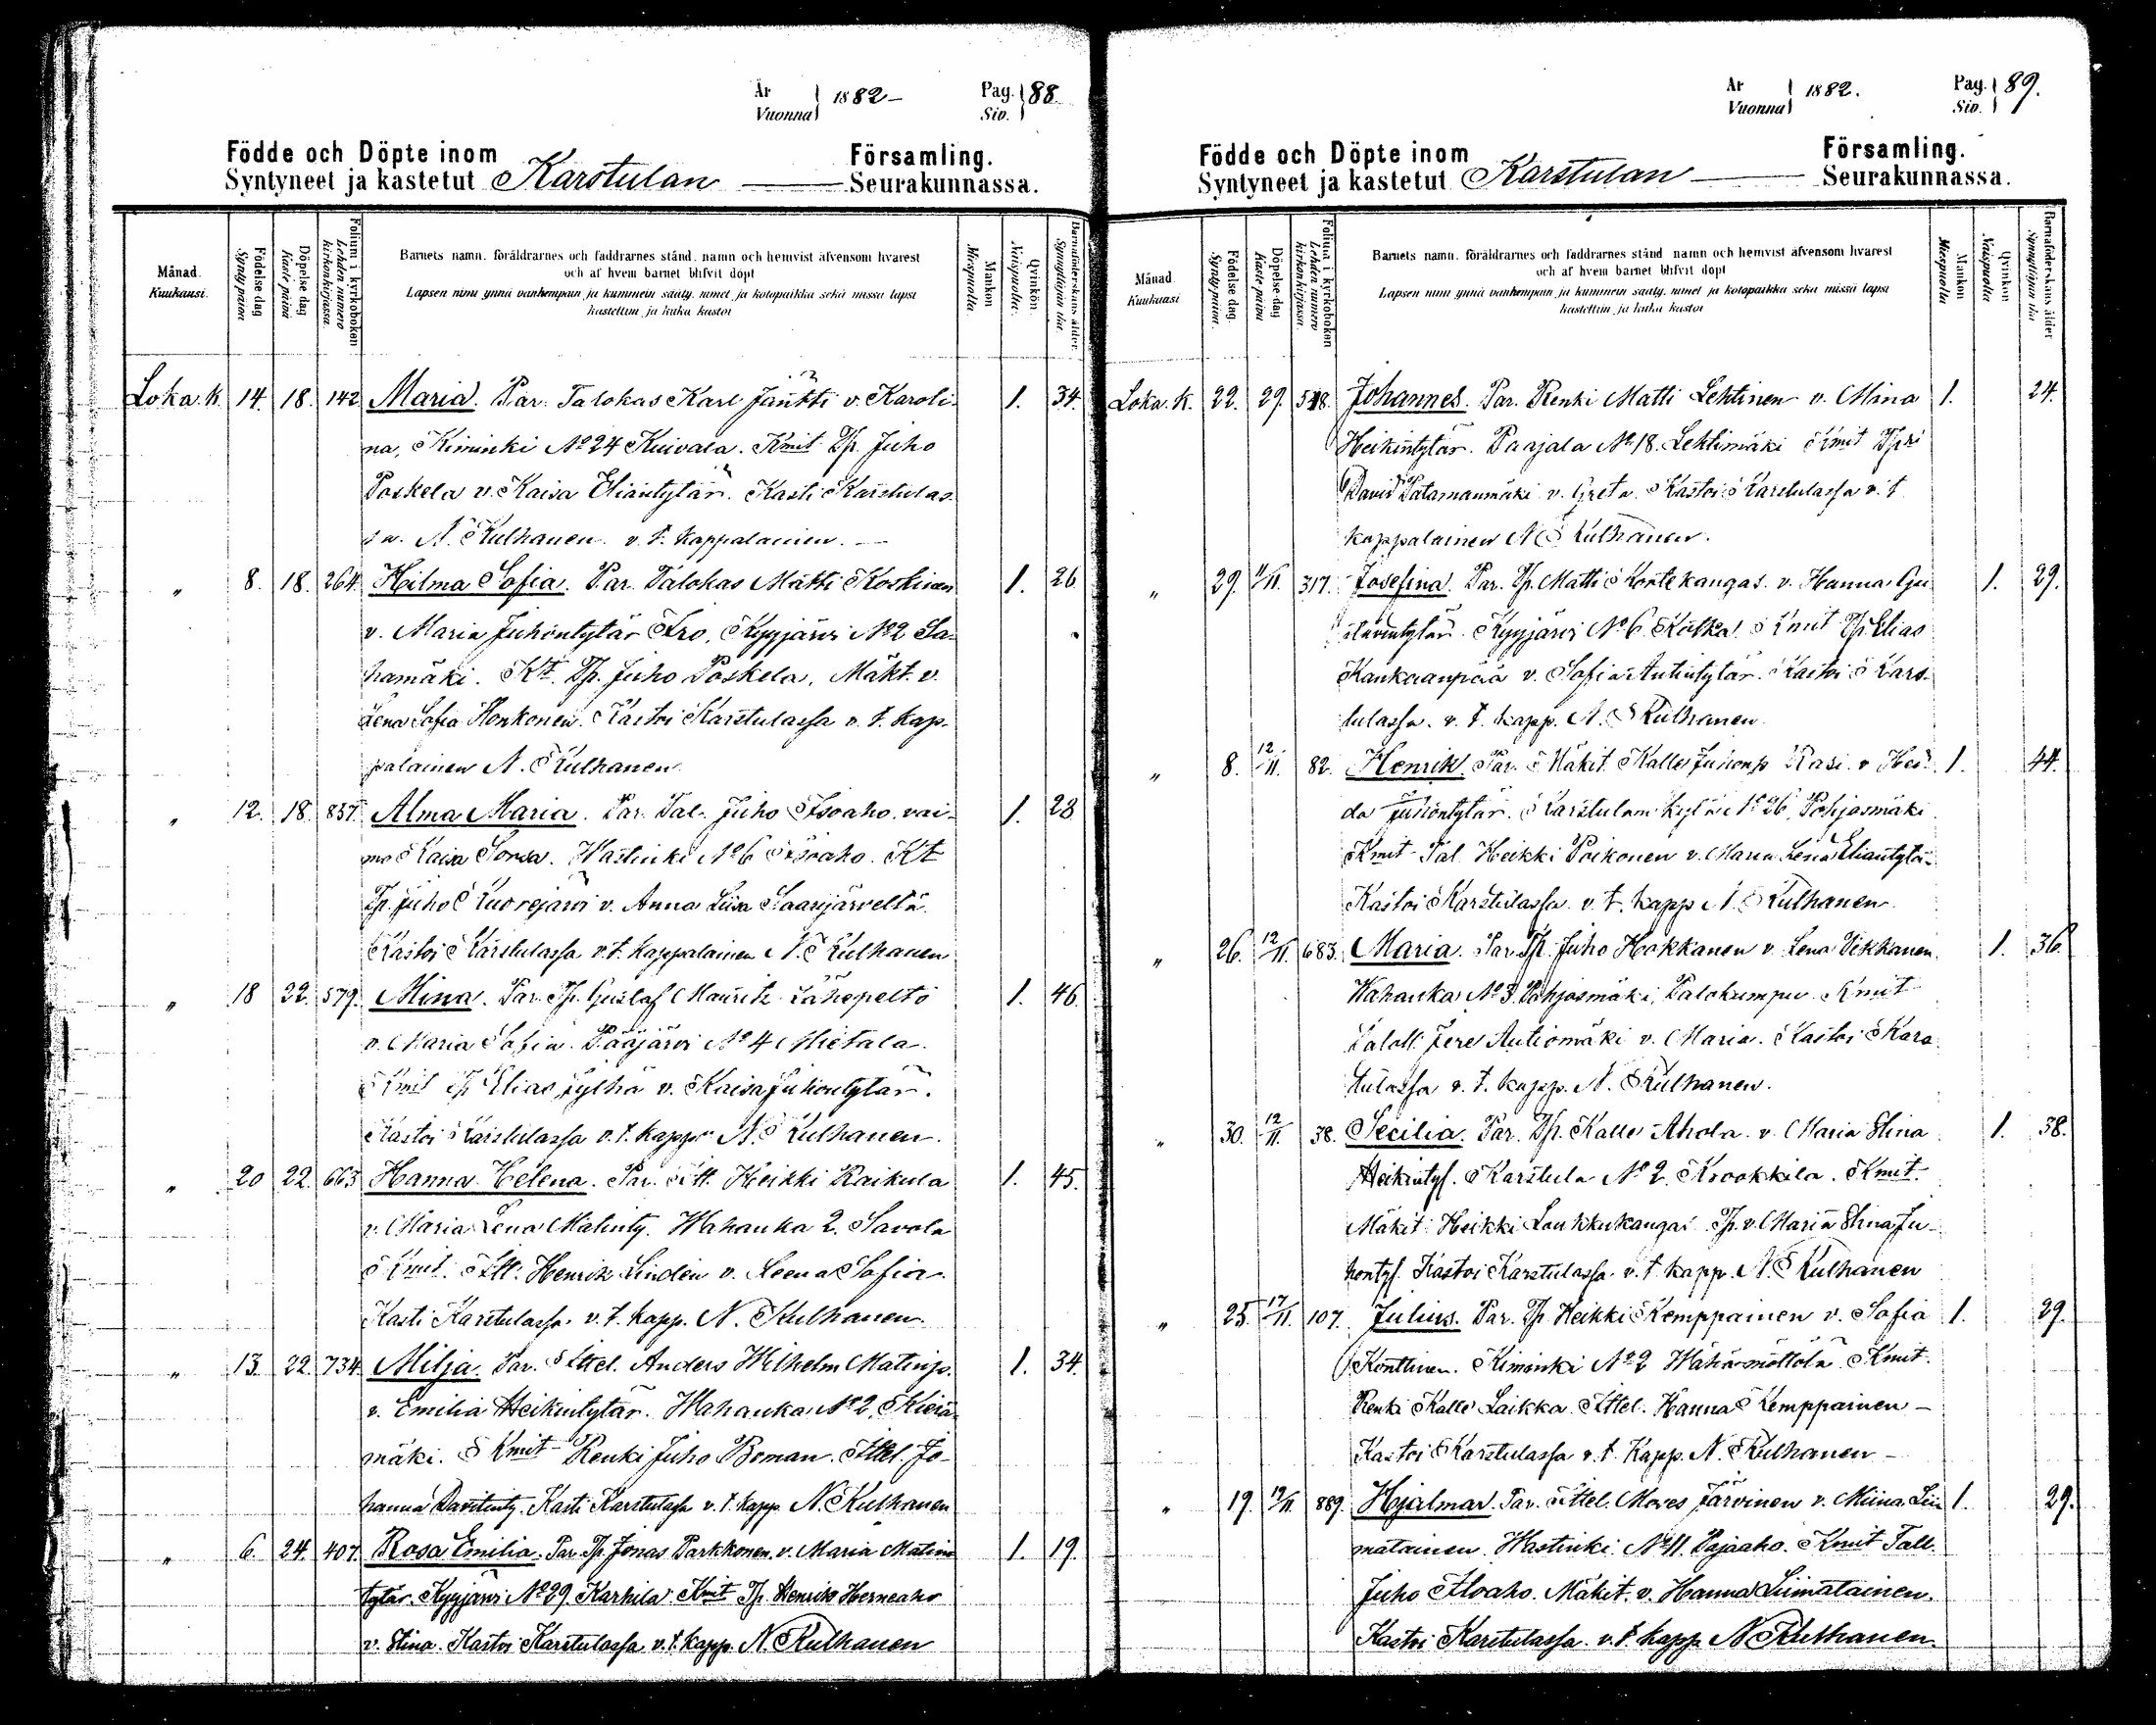 År Vuonna 1882- Pag. Siv. 88.
Födde och Döpte inom Församling.
Syntyneet ja kastetut Karstulan Seurakunnassa.
Månad. Kuukausi. Födelse dag Synty päivä Döpelse dag Kaste päivä Folium i kyrkoboken Lehden numero kirkonkirjassa.
Barnets namn, föräldrarnes och faddrarnes stånd, namn och hemvist äfvensom hvarest
och af hvem barnet blifvit döpt
Lapsen nimi ynnä vanhempain ja kummein sääty, nimet ja kotopaikka sekä missä lapsi
kastettiin ja kuka kastoi
Mankön Miespuolta. Qvinkön Naispuolta. Barnaföderskans ålder. Synnyttäjän ikä.
Loka.k. 14. 18. 142 Maria. Par. Talokas Karl Jäntti v. Karoli- 1. 34.
na, Kiminki No 24 Kuivala. Kmit Tp. Juho
Poskela v. Kaisa Eliäntytär. Kasti Karstulas
sa. N. Kulhanen v. t. kappalainen. —
" 8. 18. 264. Hilma Sofia. Par. Talokas Matti Koskinen 1. 26
v. Maria Juhontytär Iro, Kyyjärvi No 2 Sa-
hamäki. Kt. Tp. Juho Poskela, Mäkt. v.
Lena Sofia Honkonen. Kastoi Karstulassa v. t. kap-
palainen N. Kulhanen
" 12. 18. 837. Alma Maria. Par. Tal. Juho Isoaho vai- 1. 28
mo Kaisa Sorsa. Wastinki No 6 Isoaho. Kt
Tp. Juho Kuorejärvi v. Anna Liisa Saarijärveltä.
Kastoi Karstulassa v. t. kappalainen N. Kulhanen
" 18 22. 579. Mina. Par. Tp. Gustaf Mauritz Lähepelto 1. 46.
v. Maria Sofia. Pääjärvi No 4 Mietala.
Kmit Tp Elias Jylhä v. Kaisa Juhontytär.
Kastoi Karstulassa v. t. kapp. N. Kulhanen.
" 20 22. 663 Hanna Helena. Par. Itt. Heikki Raikula 1. 45.
v. Maria Lena Matinty. Wahanka 2. Savola
Kmit. Itt. Henrik Linden v. Leena Sofia.
Kasti Karstulassa v. t. kapp. N. Kulhanen.
" 13. 22. 734. Milja. Par. Ittel. Anders Wilhelm Matinp. 1. 34.
v. Emilia Heikintytär. Wahanka No 2, Kiviä
mäki. Kmit Renki Juho Boman. Ittel. Jo-
hanna Davitinty. Kasti Karstulassa v. t. kapp. N. Kulhanen
" 6. 24. 407. Rosa Emilia. Par. Tp. Jonas Parkkonen, v. Maria Matin 1. 19.
tytär. Kyyjärvi No 29 Karhila. Kmit Tp. Henrik Herneaho
v. Stina. Kastoi Karstulassa v. t. kapp. N. Kulhanen
År Vuonna 1882. Pag. Siv. 89.
Födde och Döpte inom Församling.
Syntyneet ja kastetut Karstulan Seurakunnassa.
Månad Kuukausi Födelse dag. Synty päivä. Döpelse dag Kaste päivä Folium i kyrkoboken Lehden numero kirkonkirjassa.
Barnets namn, föräldrarnes och faddrarnes stånd namn och hemvist äfvensom hvarest
och af hvem barnet blifvit döpt
Lapsen nimi ynnä vanhempain ja kummein sääty, nimet ja kotopaikka sekä missä lapsi
kastettiin ja kuka kastoi
Mankön Miespuolta Qvinkön Naispuolta Barnaföderskans ålder Synnyttäjän ikä
Loka.k. 22. 29. 518. Johannes. Par. Renki Matti Lehtinen v. Mina 1. 24.
Heikintytär. Paajala No 18. Lehtimäki Kmit Tpri
David Patamanmäki v. Greta. Kastoi Karstulassa v. t.
kappalainen N. Kulhanen.
" 29. 11/11. 317. Josefina. Par. Tp. Matti Kontekangas. v. Hanna Gu 1. 29.
stavintytär. Kyyjärvi No 6 Kotka. Kmit Tp. Elias
Kankaanpää v. Sofia Antintytär. Kastoi Kars-
tulassa. v. t. kapp. N. Kulhanen.
" 8. 12/11. 82. Henrik. Par. Mäkit. Kalle Juhonp Rasi. v. Hed- 1. 44.
da Juhontytär. Karstulan kylä No 26, Pohjasmäki
Kmit Tal. Heikki Poikonen v. Maria Lena Eliantytär.
Kastoi Karstulassa. v. t. kapp N. Kulhanen
" 26. 12/11. 683. Maria. Par. Tp. Juho Hakkanen v. Lena Vekkanen 1. 36.
Wahanka No 3. Pohjasmäki, Palokumpu. Kmit
Taloll. Jere Autiomäki v. Maria. Kastoi Kars
tulassa v. t. kapp. N. Kulhanen.
" 30. 12/11. 38. Secilia. Par. Tp. Kalle Ahola. v. Maria Stina 1. 38.
Heikintyt. Karstula No 2. Krookkila. Kmit
Mäkit Heikki Loukkukangas Tp. v. Maria Stina Ju-
hontyt. Kastoi Karstulassa v. t. kapp. N. Kulhanen
" 25. 17/11. 107. Julius. Par. Tp. Heikki Kemppainen v. Sofia 1. 29.
Konttinen. Kiminki No 2 Wähämöttölä. Kmit.
Renki Kalle Laikka. Ittel. Hanna Kemppainen -
Kastoi Karstulassa v. t. Kapp. N. Kulhanen -
" 19. 19/11. 889. Hjalmar. Par. Ittel. Moses Järvinen v. Miina Lii 1. 29.
matainen. Wastinki. No 11. Pajaaho. Kmit Tall.
Juho Iloaho. Mäkit. v. Hanna Liimatainen.
Kastoi Karstulassa. v. t. kapp N. Kulhanen.